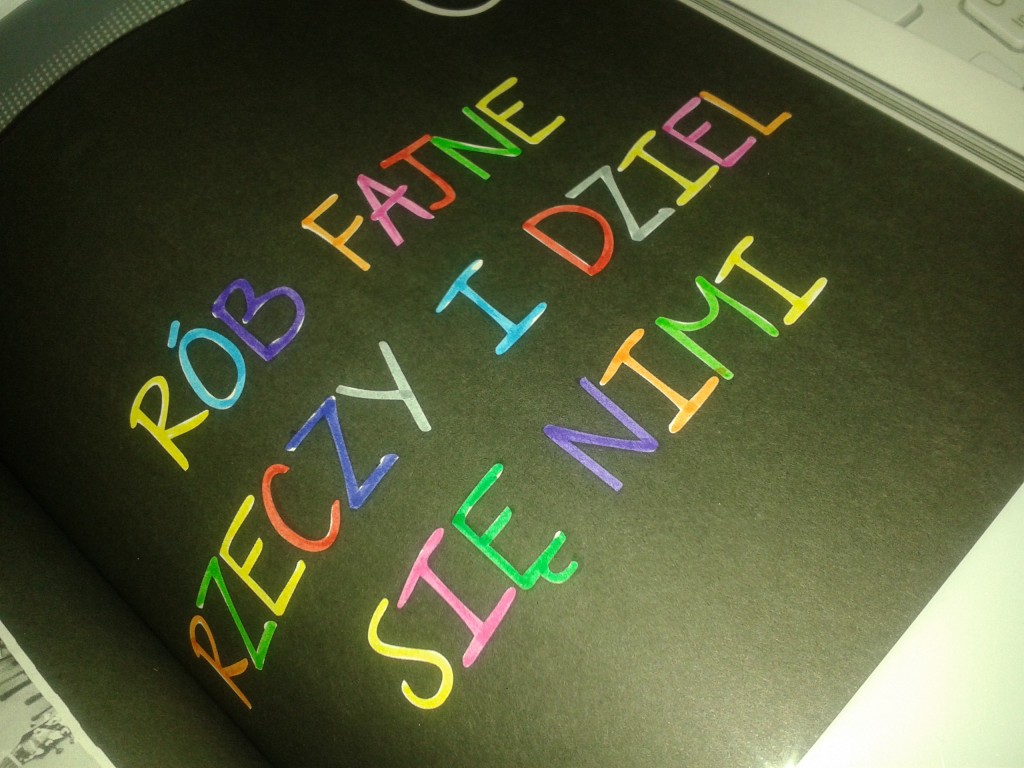 RÓB FAJNE
RZECZY I DZIEL
SIĘ NIMI